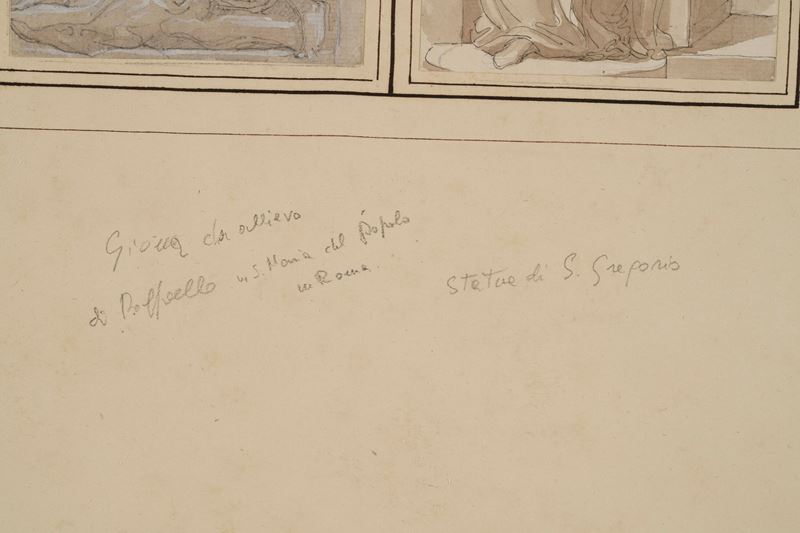 Giona da allievo
di Raffaello in S. Maria del Popolo
in Roma.
Statue di S. Gregorio